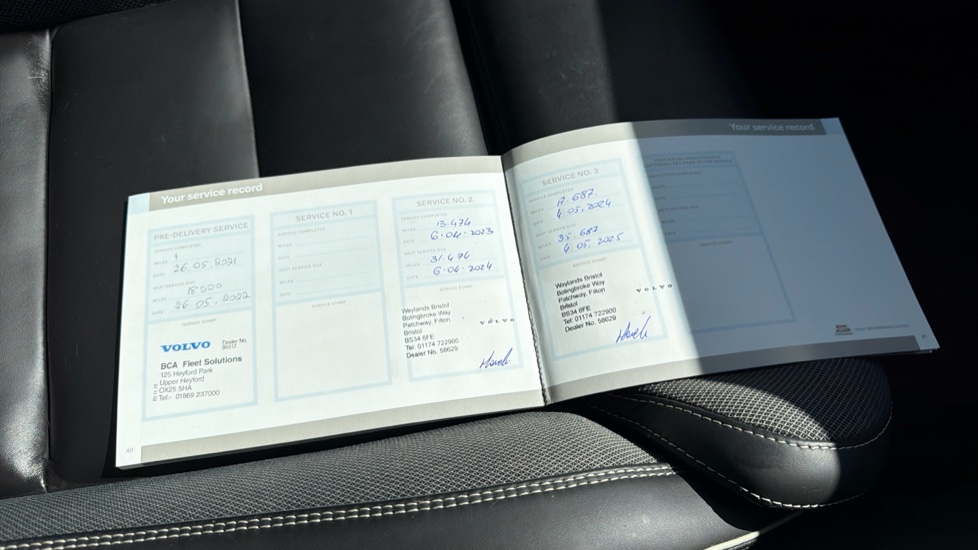 Your service record
PRE-DELIVERY SERVICE
SERVICE COMPLETED
MILES 1
DATE 26.05.2021
NEXT SERVICE DUE
MILES 18000
DATE 26.05.2022
SERVICE STAMP
VOLVO
Dealer No.
BCA Fleet Solutions
125 Heyford Park
Upper Heyford
OX25 5HA
Tel:- 01869 237000
SERVICE NO. 1
SERVICE COMPLETED
MILES
DATE
NEXT SERVICE DUE
MILES
DATE
SERVICE STAMP
SERVICE NO. 2
SERVICE COMPLETED
MILES 13.474
DATE 6.04.2023
NEXT SERVICE DUE
MILES 31.474
DATE 6.04.2024
SERVICE STAMP
Waylands Bristol
Bolingbroke Way
Patchway, Filton
Bristol
BS34 6FE
Tel: 01174 722900
Dealer No. 58629
VOLVO
40
Your service record
SERVICE NO. 3
SERVICE COMPLETED
MILES 17.687
DATE 4.05.2024
NEXT SERVICE DUE
MILES 35.687
DATE 4.05.2025
SERVICE STAMP
Waylands Bristol
Bolingbroke Way
Patchway, Filton
Bristol
BS34 6FE
Tel: 01174 722900
Dealer No. 58629
VOLVO
SERVICE COMPLETED
MILES
DATE
NEXT SERVICE DUE
MILES
DATE
SERVICE STAMP